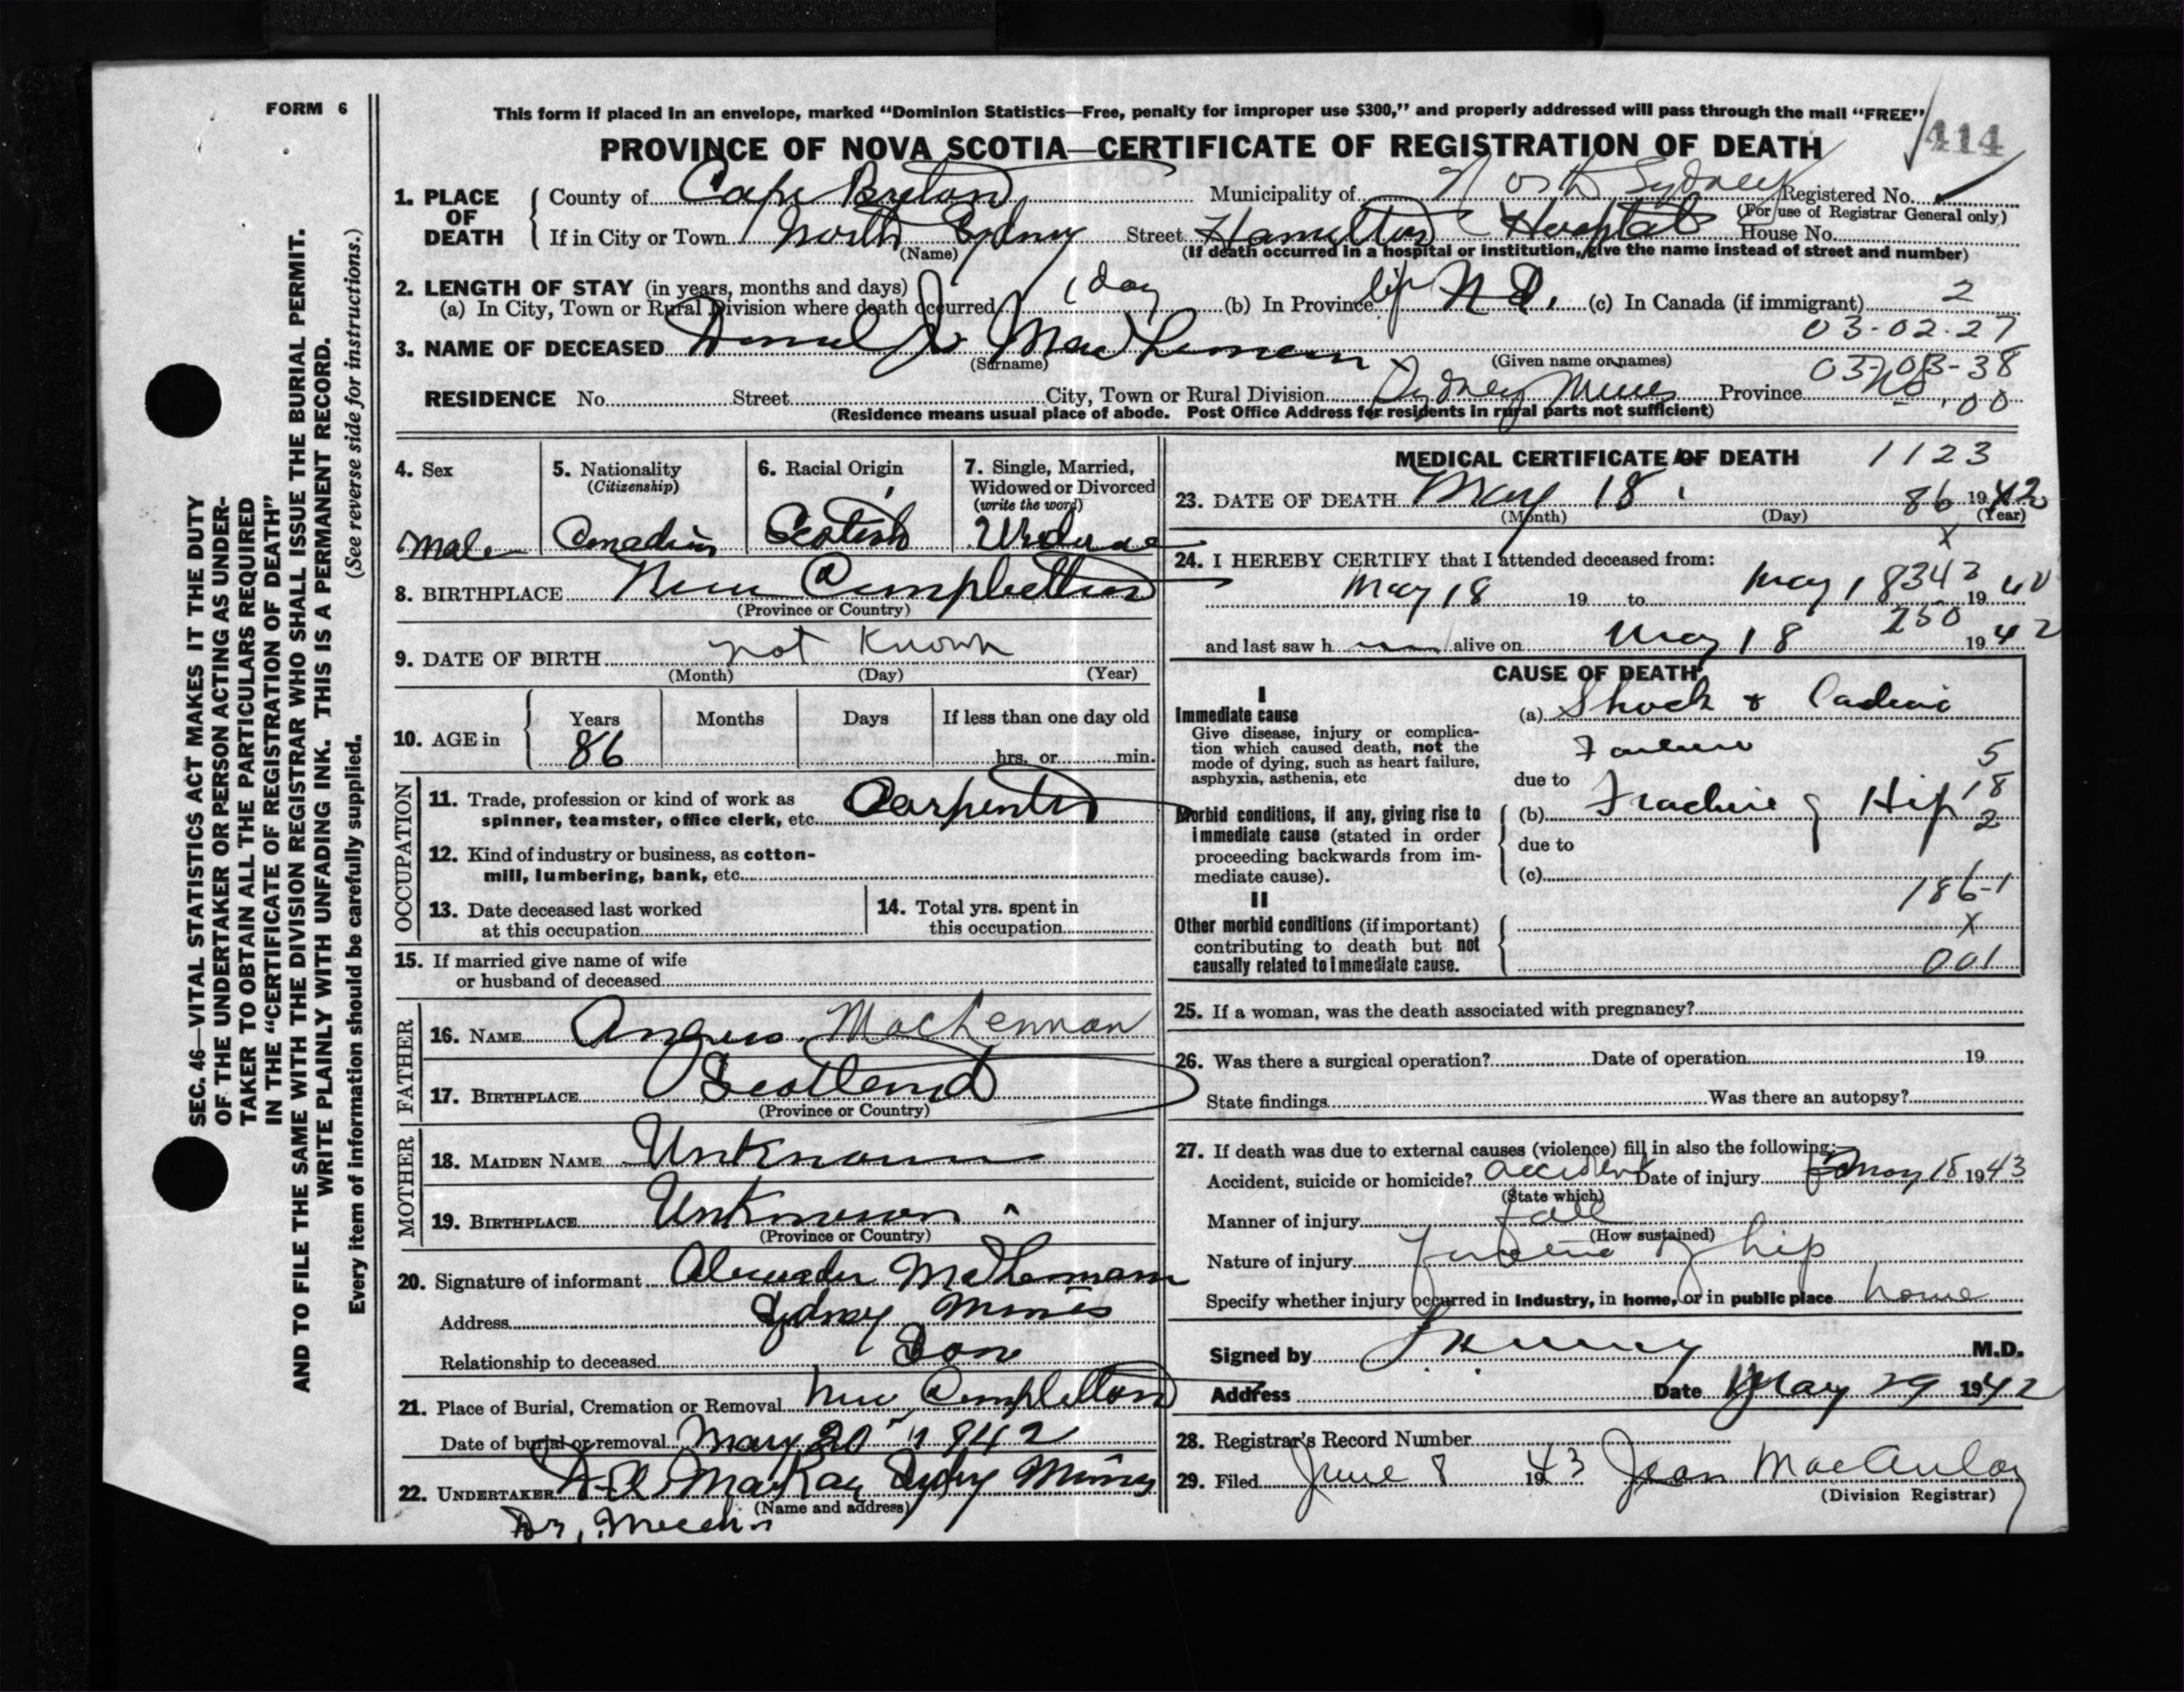 FORM 6
This form if placed in an envelope, marked “Dominion Statistics—Free, penalty for improper use $300,” and properly addressed will pass through the mail “FREE”
414
PROVINCE OF NOVA SCOTIA—CERTIFICATE OF REGISTRATION OF DEATH
1. PLACE OF DEATH
County of Cape Breton Municipality of North Sydney Registered No.
(For use of Registrar General only)
If in City or Town North Sydney Street Hamilton Hospital House No.
(Name) (If death occurred in a hospital or institution, give the name instead of street and number)
2. LENGTH OF STAY (in years, months and days)
(a) In City, Town or Rural Division where death occurred 1 day (b) In Province life N.S. (c) In Canada (if immigrant) 2
03-02-27
3. NAME OF DECEASED Daniel J. MacLennan
(Surname) (Given name or names)
03-03-38
RESIDENCE No. Street City, Town or Rural Division Sydney Mines Province NS 00
(Residence means usual place of abode. Post Office Address for residents in rural parts not sufficient)
4. Sex
Male
5. Nationality
(Citizenship)
Canadian
6. Racial Origin
Scotish
7. Single, Married,
Widowed or Divorced
(write the word)
8. BIRTHPLACE New Campbellton
(Province or Country)
9. DATE OF BIRTH not Known
(Month) (Day) (Year)
10. AGE in
Years Months Days If less than one day old
86 hrs. or min.
OCCUPATION
11. Trade, profession or kind of work as
spinner, teamster, office clerk, etc. Carpenter
12. Kind of industry or business, as cotton-
mill, lumbering, bank, etc.
13. Date deceased last worked
at this occupation
14. Total yrs. spent in
this occupation
15. If married give name of wife
or husband of deceased
FATHER
16. NAME Angus MacLennan
17. BIRTHPLACE Scotland
(Province or Country)
MOTHER
18. MAIDEN NAME Unknown
19. BIRTHPLACE Unknown
(Province or Country)
20. Signature of informant Alexander McLennan
Address Sydney Mines
Relationship to deceased Son
21. Place of Burial, Cremation or Removal New Campbellton
Date of burial or removal May 20 1942
22. UNDERTAKER MacKay Sydney Mines
(Name and address)
Dr.
MEDICAL CERTIFICATE OF DEATH 1123
23. DATE OF DEATH May 18 86 1942
(Month) (Day) (Year)
x
24. I HEREBY CERTIFY that I attended deceased from:
May 18 19 to May 18 343 19 42
250
and last saw h alive on May 18 19 42
CAUSE OF DEATH
I
Immediate cause
Give disease, injury or complica-
tion which caused death, not the
mode of dying, such as heart failure,
asphyxia, asthenia, etc
(a) Shock & Cardiac
Failure
5
due to
18
Morbid conditions, if any, giving rise to
immediate cause (stated in order
proceeding backwards from im-
mediate cause).
(b) Fracture of Hip
2
due to
(c)
186-1
II
Other morbid conditions (if important)
contributing to death but not
causally related to immediate cause.
X
001
25. If a woman, was the death associated with pregnancy?
26. Was there a surgical operation? Date of operation 19
State findings Was there an autopsy?
27. If death was due to external causes (violence) fill in also the following:
Accident, suicide or homicide? accident Date of injury May 18 1943
(State which)
Manner of injury fall
(How sustained)
Nature of injury Fracture of hip
Specify whether injury occurred in Industry, in home, or in public place home
Signed by M.D.
Address Date May 29 1942
28. Registrar's Record Number
29. Filed June 8 1943 Jean MacAulay
(Division Registrar)
SEC. 46—VITAL STATISTICS ACT MAKES IT THE DUTY
OF THE UNDERTAKER OR PERSON ACTING AS UNDER-
TAKER TO OBTAIN ALL THE PARTICULARS REQUIRED
IN THE “CERTIFICATE OF REGISTRATION OF DEATH”
AND TO FILE THE SAME WITH THE DIVISION REGISTRAR WHO SHALL ISSUE THE BURIAL PERMIT.
WRITE PLAINLY WITH UNFADING INK. THIS IS A PERMANENT RECORD.
Every item of information should be carefully supplied. (See reverse side for instructions.)